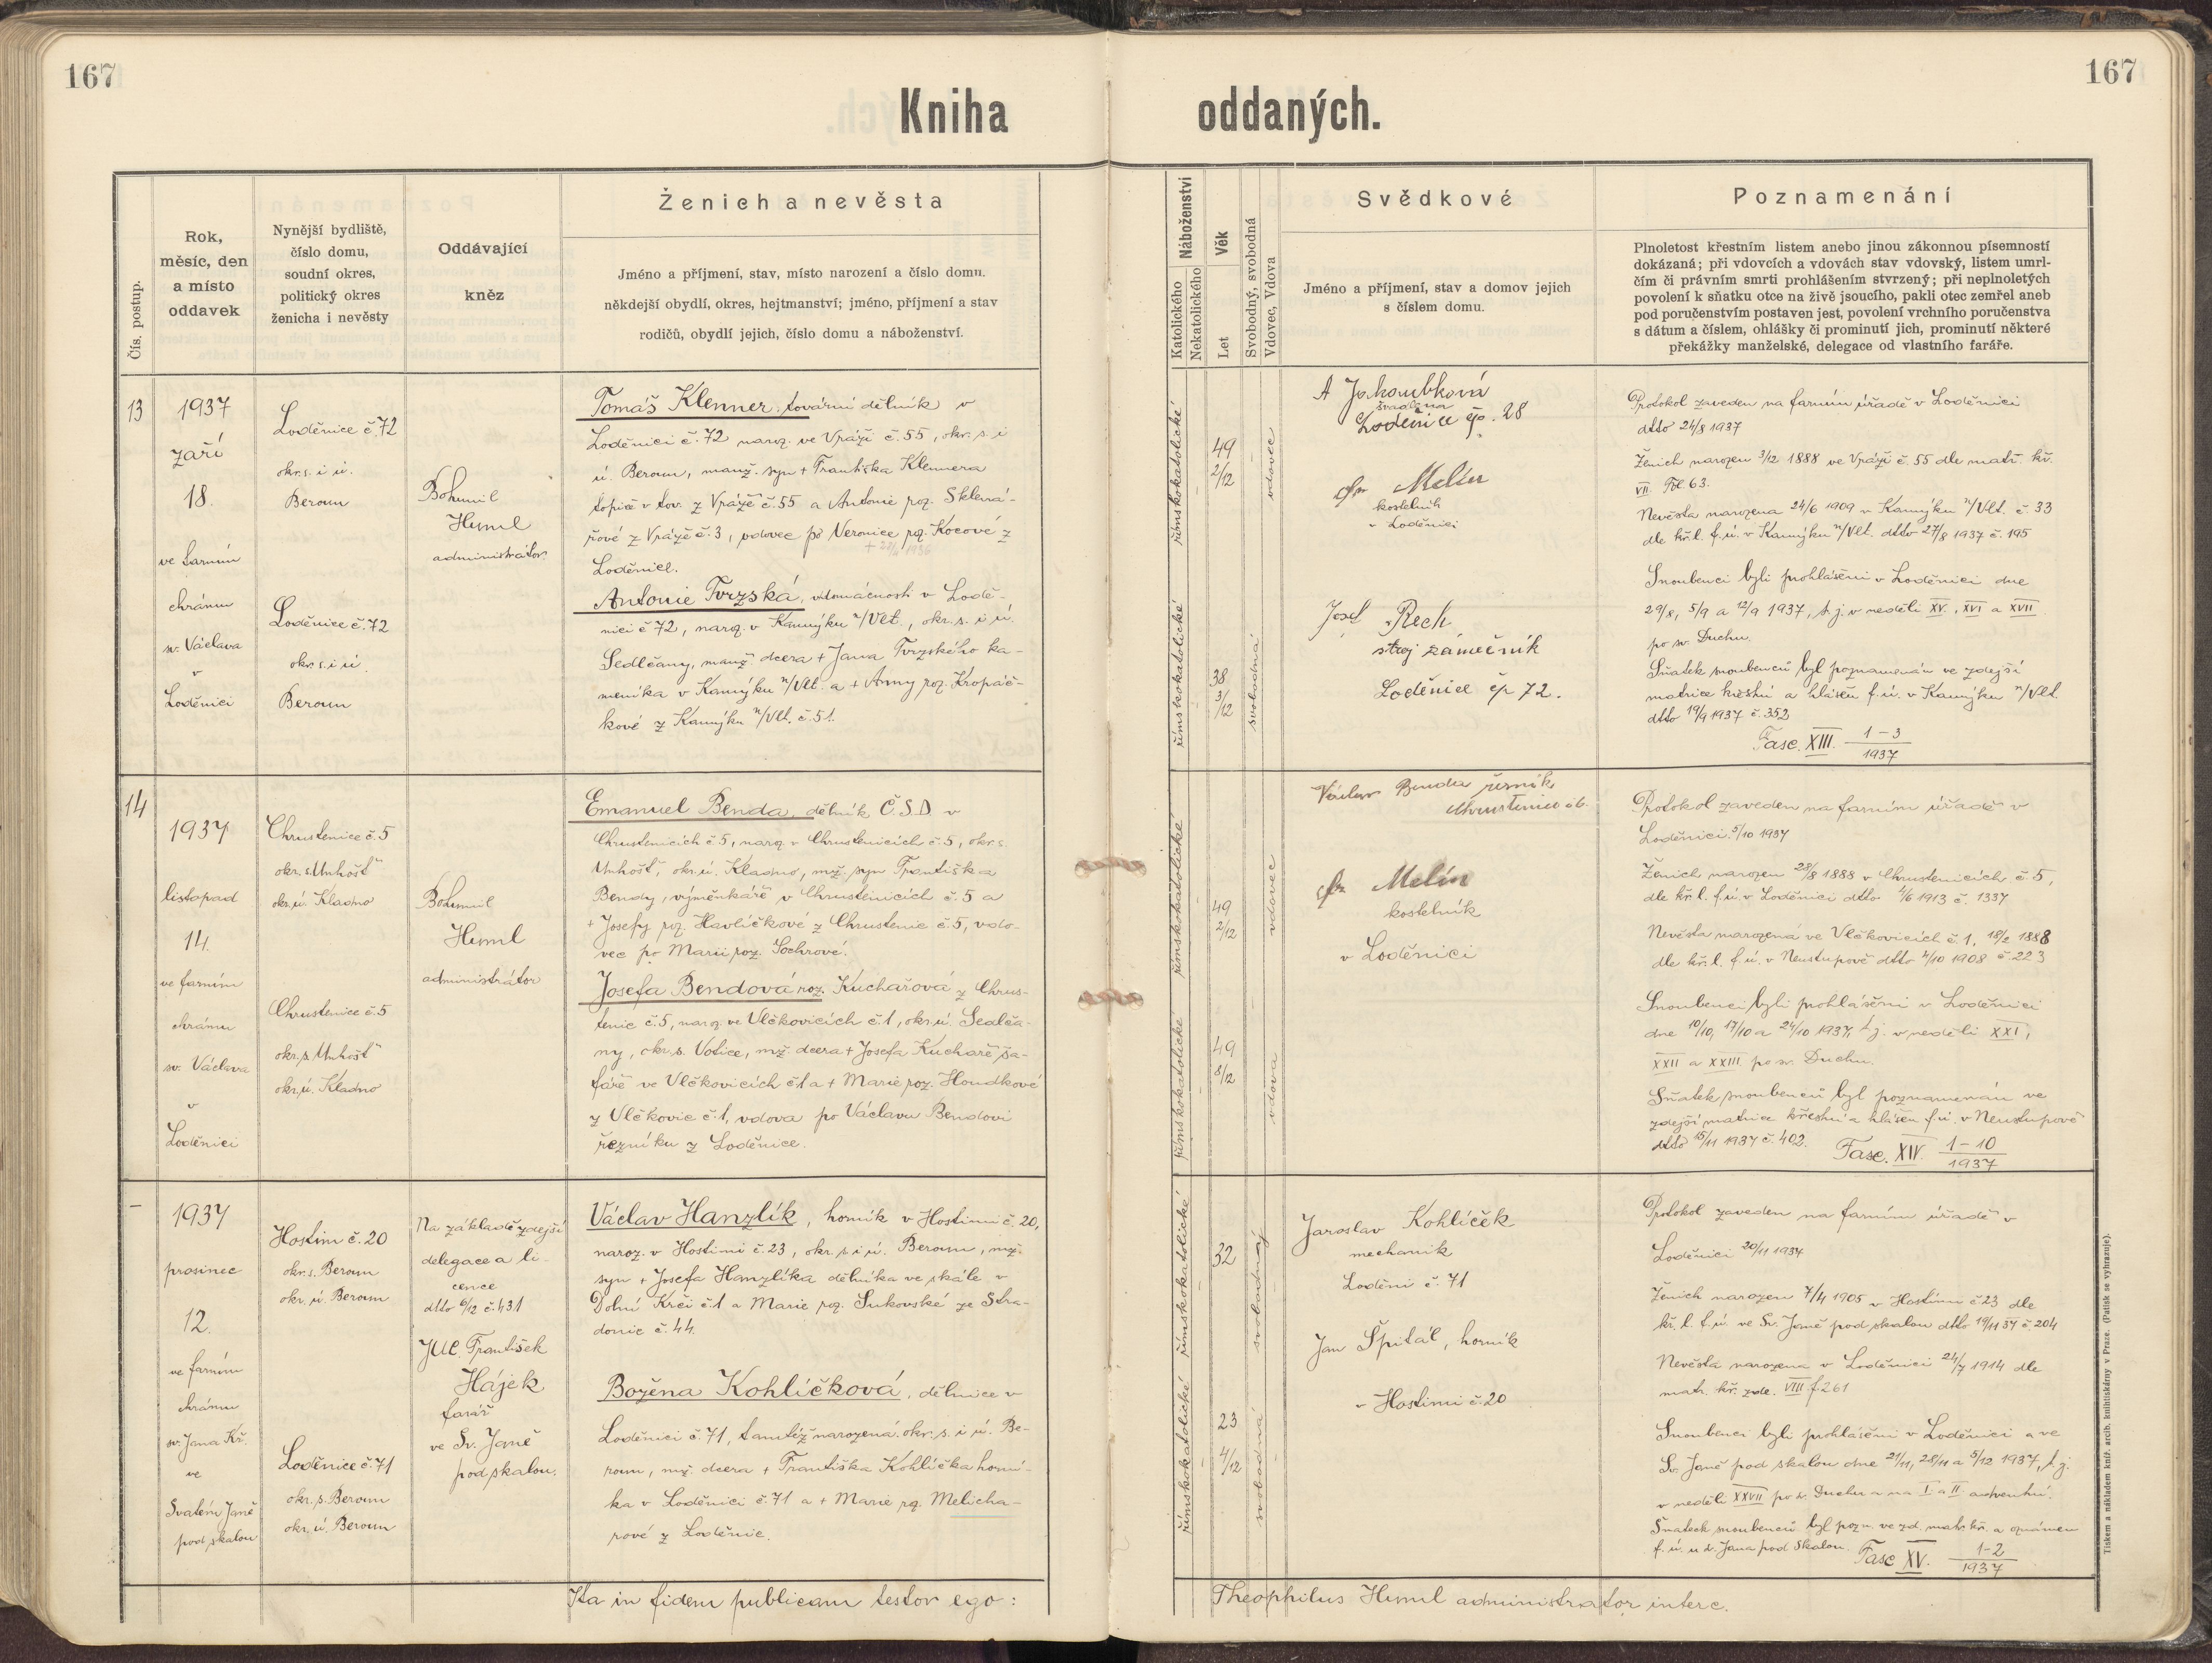 167
167
Kniha oddaných.
Čís. postup.
Rok,
měsíc, den
a místo
oddavek
Nynější bydliště,
číslo domu,
soudní okres,
politický okres
ženicha i nevěsty
Oddávající
kněz
Ženich a nevěsta
Jméno a příjmení, stav, místo narození a číslo domu.
někdejší obydlí, okres, hejtmanství; jméno, příjmení a stav
rodičů, obydlí jejich, číslo domu a náboženství.
Náboženství
Katolického
Nekatolického
Věk
Let
Svobodný, svobodná
Vdovec, Vdova
Svědkové
Jméno a příjmení, stav a domov jejich
s číslem domu.
Poznamenání
Plnoletost křestním listem anebo jinou zákonnou písemností
dokázaná; při vdovcích a vdovách stav vdovský, listem umrl-
čím či právním smrti prohlášením stvrzený; při neplnoletých
povolení k sňatku otce na živě jsoucího, pakli otec zemřel aneb
pod poručenstvím postaven jest, povolení vrchního poručenstva
s dátum a číslem, ohlášky či prominutí jich, prominutí některé
překážky manželské, delegace od vlastního faráře.
13
1937
září
18.
ve farním
chrámu
sv. Václava
v
Loděnici
Loděnice č. 72
okr. s. i ú.
Beroun
Loděnice č. 72
okr. s. i ú.
Beroun
Bohumil
Huml
administrátor
Tomáš Klenner, tovární dělník v
Loděnici č. 72 naroz. ve Vráži č. 55, okr. s. i
ú. Beroun, manž. syn + Františka Klennera
topiče v tov. z Vráže č. 55 a Antonie roz. Sklená-
řové z Vráže č. 3, vdovec po Veronice roz. Kocové z
Loděnice.
Antonie Tvrzská, v domácnosti v Lodě-
nici č 72, naroz. v Kamýku n/Vlt., okr. s. i ú.
Sedlčany, manž. dcera + Jana Tvrzského ka-
meníka v Kamýku n/Vlt. a + Anny roz. Kropáč-
kové z Kamýku n/Vlt. č. 51.
římskokatolické
49
2/12
vdovec
římskokatolické
38
3/12
svobodná
švadlena
Loděnice čp. 28
Melín
kostelník
v Loděnici
Josef Rech
stroj zámečník
Loděnice čp 72.
Protokol zaveden na farním úřadě v Loděnici
dtto 24/8 1937
Ženich narozen 3/12 1888 ve Vráži č. 55 dle matr. kř.
VII. Fol 63.
Nevěsta narozena 24/6 1909 v Kamýku n/Vlt. č. 33
dle kř. l. f. ú. v Kamýku n/Vlt. dtto 27/8 1937 č. 195
Snoubenci byli prohlášeni v Loděnici dne
29/8, 5/9 a 12/9 1937, t. j. v neděli XV., XVI a XVII
po sv. Duchu.
Sňatek snoubenců byl poznamenán ve zdejší
matrice křestní a hlášen f. ú. v Kamýku n/Vlt
dtto 19/9 1937 č. 352
Fasc. XIII. 1-3/1937
14
1937
listopad
14.
ve farním
chrámu
sv. Václava
v
Loděnici
Chrustenice č. 5
okr. s. Unhošť
okr. ú. Kladno
Chrustenice č. 5
okr. s. Unhošť
okr. ú. Kladno
Bohumil
Huml
administrátor
Emanuel Benda, dělník Č.S.D. v
Chrustenicích č. 5, naroz. v Chrustenicích č. 5, okr. s.
Unhošť, okr. ú. Kladno, mž. syn Františka
Bendy, výměnkáře v Chrustenicích č. 5 a
+ Josefy roz. Havlíčkové z Chrustenic č. 5, vdo-
vec po Marii roz. Sochrové.
Josefa Bendová roz. Kuchařová z Chrus-
tenic č. 5, naroz. ve Vlčkovicích č. 1, okr. ú. Sedlča-
ny, okr. s. Votice, mž. dcera + Josefa Kuchaře ša-
fáře ve Vlčkovicích č. 1 a + Marie roz. Houdkové
z Vlčkovic č. 1, vdova po Václavu Bendovi
řezníku z Loděnice.
římskokatolické
49
2/12
vdovec
římskokatolické
49
8/12
vdova
Václav Benda řezník
Chrustenice č 6.
Melín
kostelník
v Loděnici
Protokol zaveden na farním úřadě v
Loděnici. 5/10 1937
Ženich narozen 28/8 1888 v Chrustenicích č 5,
dle kř. l. f. ú. v Loděnici dtto 4/6 1913 č. 1337
Nevěsta narozená ve Vlčkovicích č. 1, 18/2 1888
dle kř. l. f. ú. v Neustupově dtto 4/10 1908 č. 223
Snoubenci byli prohlášeni v Loděnici
dne 10/10, 17/10 a 24/10 1937, t. j. v neděli XXI,
XXII a XXIII po sv. Duchu.
Sňatek snoubenců byl poznamenán ve
zdejší matrice křestní a hlášen f. ú. v Neustupově
dtto 15/11 1937 č. 402.
Fasc. XIV. 1-10/1937
–
1937
prosinec
12.
ve farním
chrámu
sv. Jana Kř.
ve
Svatém Janě
pod skalou
Hostim č. 20
okr. s. Beroun
okr. ú. Beroun
Loděnice č. 71
okr. s. Beroun
okr. ú. Beroun
Na základě zdejší
delegace a li-
cence
dtto 6/12 č. 431
JUC. František
Hájek
farář
ve Sv. Janě
pod skalou.
Václav Hanzlík, horník v Hostimi č. 20,
naroz. v Hostimi č. 23, okr. s. i ú. Beroun, mž.
syn + Josefa Hanzlíka dělníka ve skále v
Dolní Krči č. 1 a Marie roz. Sukovské ze Stra-
donic č. 44.
Božena Kohlíčková, dělnice v
Loděnici č. 71, tamtéž narozená. okr. s. i ú. Be-
roun, mž. dcera + Františka Kohlíčka horní-
ka v Loděnici č. 71 a + Marie roz. Melicha-
rové z Loděnic.
římskokatolické
32
svobodný
římskokatolické
23
4/12
svobodná
Jaroslav Kohlíček
mechanik
Loděni č. 71
Jan Špitál, horník
v Hostimi č. 20
Protokol zaveden na farním úřadě v
Loděnici 20/11 1937
Ženich narozen 7/4 1905 v Hostimi č 23 dle
kř. l. f. ú. ve Sv. Janě pod skalou dtto 19/11 37 č 204
Nevěsta narozena v Loděnici 24/7 1914 dle
matr. kř. zde. VIII f. 261
Snoubenci byli prohlášeni v Loděnici a ve
Sv. Janě pod skalou dne 21/11, 28/11 a 5/12 1937, t. j.
v neděli XXVII po sv. Duchu a na I a II adventní.
Sňatek snoubenců byl pozn. ve zd. matr. kř. a oznámen
f. ú. u sv. Jana pod Skalou.
Fasc XV. 1-2/1937
Ita in fidem publicam testor ego: Theophilus Huml administrator interc.
Tiskem a nákladem kníž. arcib. knihtiskárny v Praze. (Patisk se vyhrazuje).